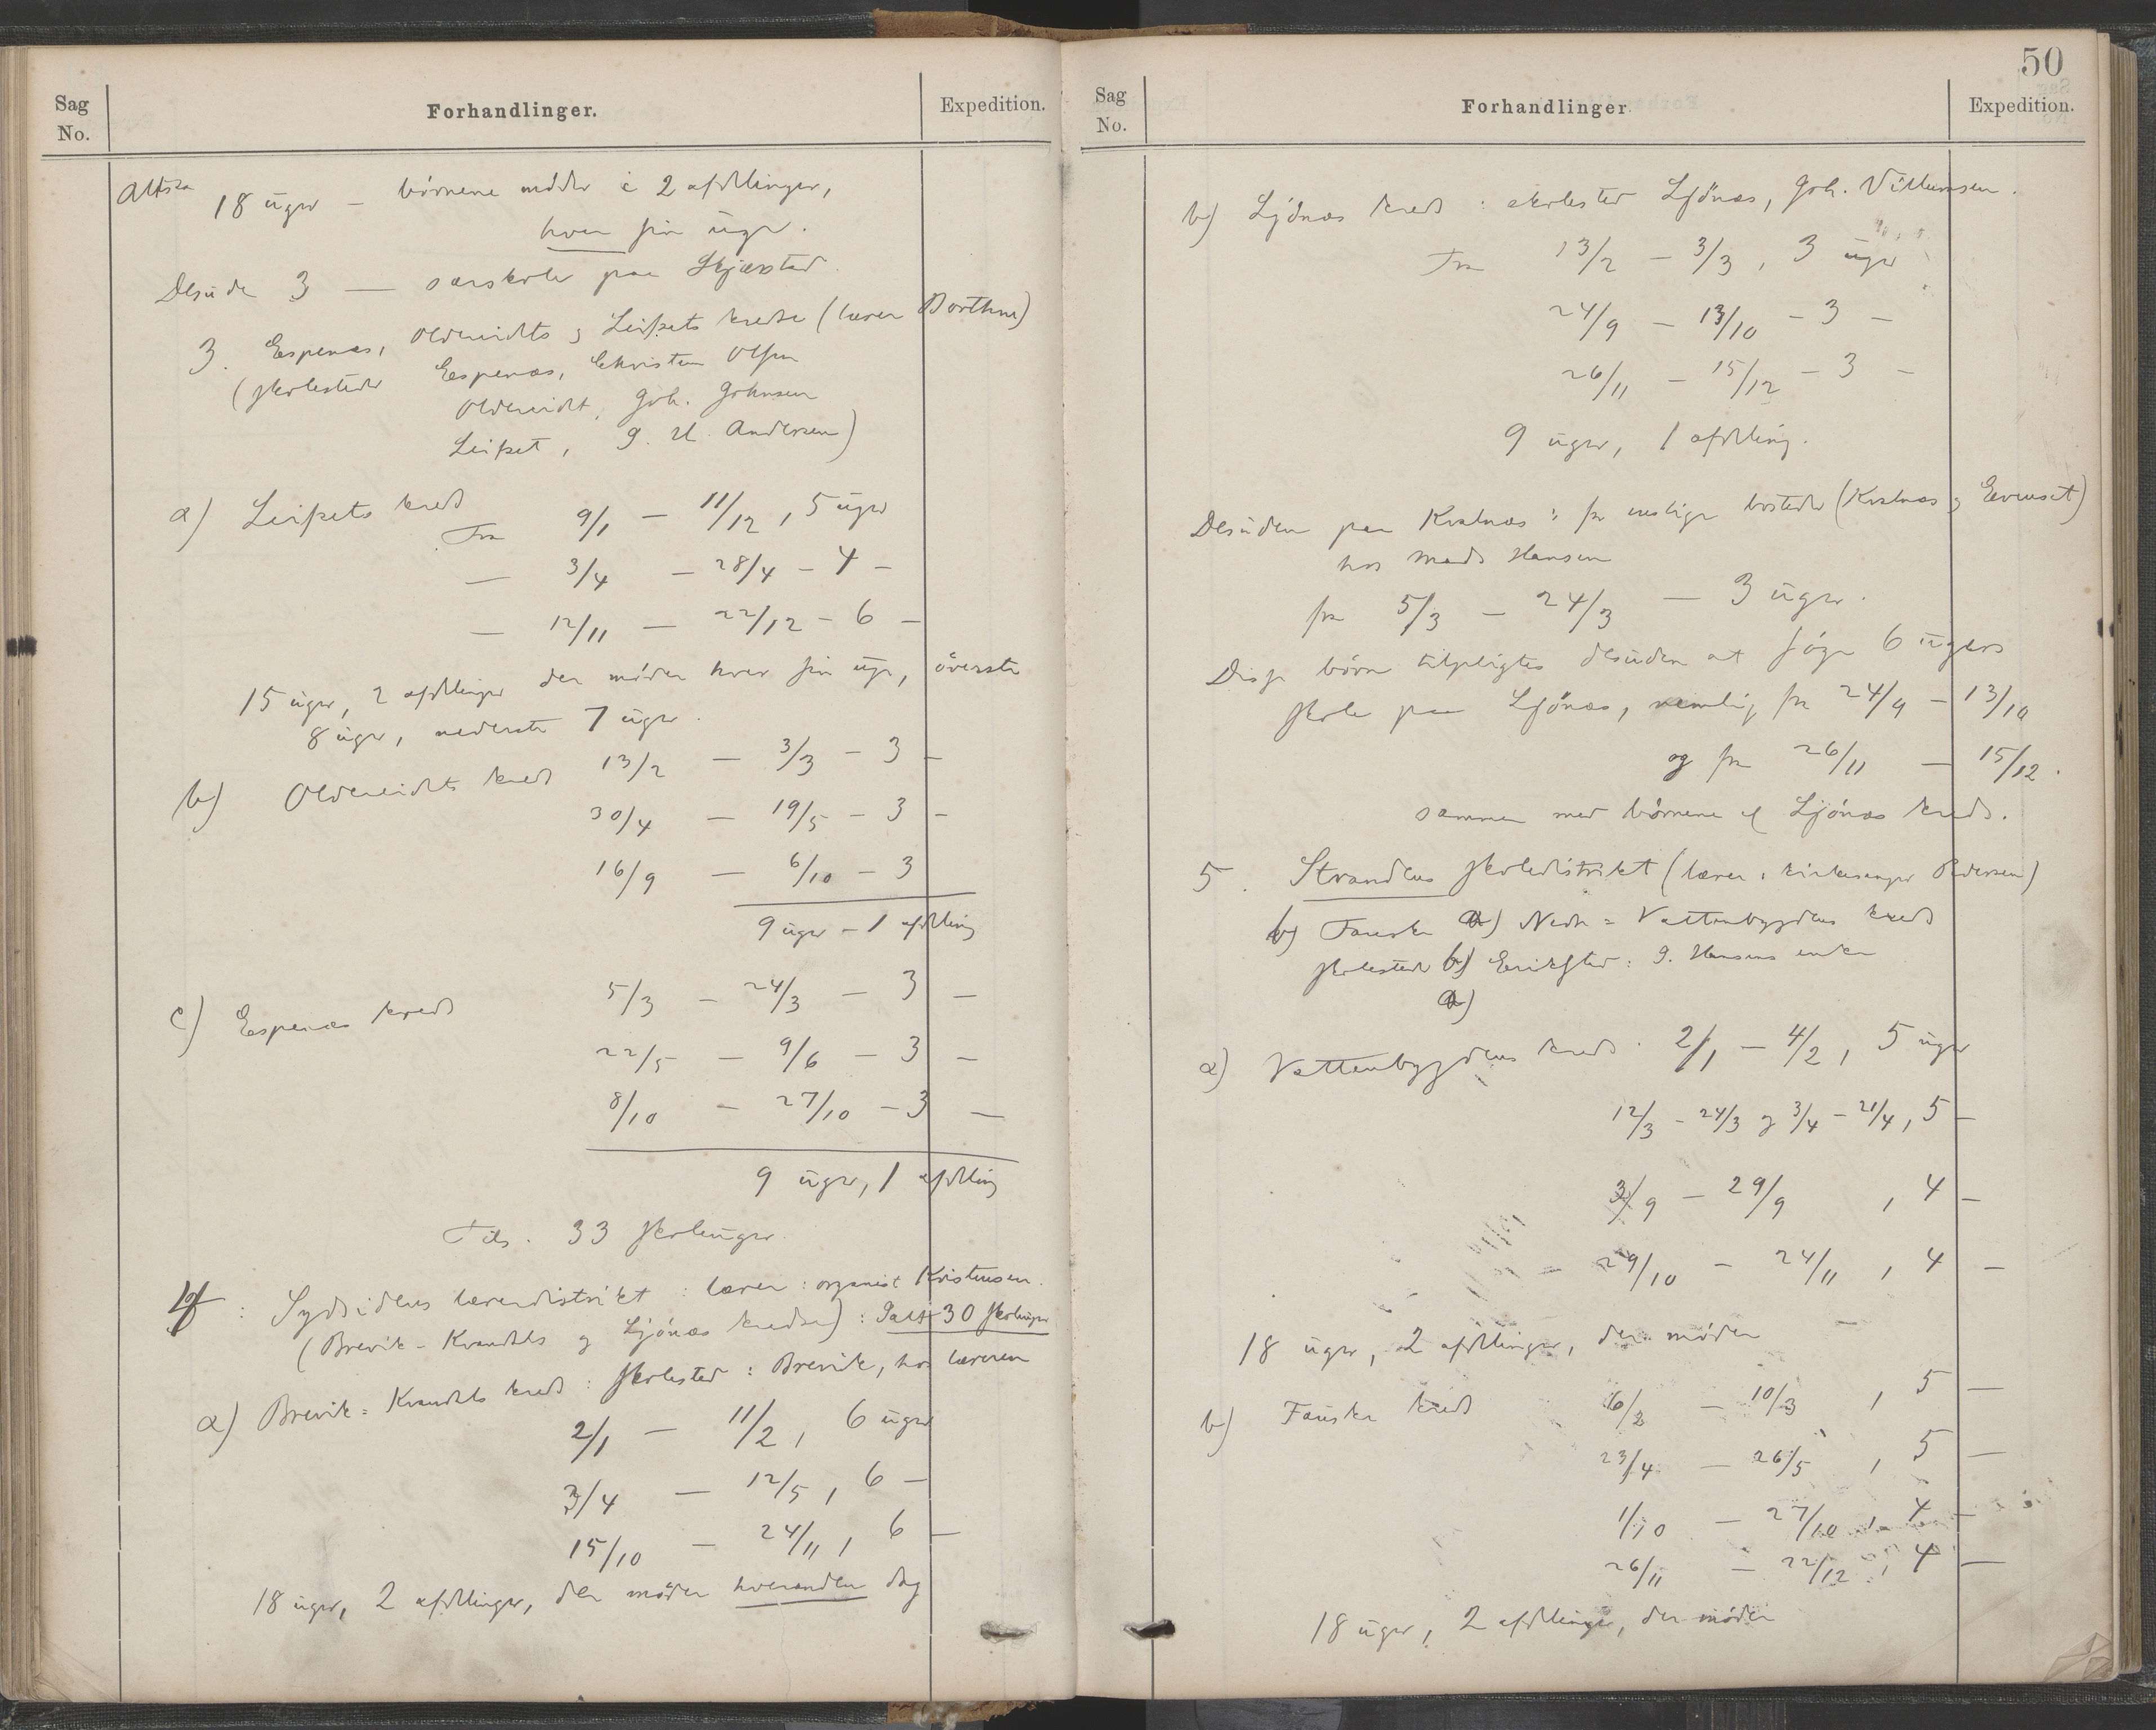 Sag No.
Forhandlinger.
Expedition.
Altsaa 18 uger – börnene möder i 2 afdelinger,
hver sin uge.
Desuden 3 — særskole paa Skjærstad.
3. Espenæs, Oldereidets og Leifsets kredse (lærer Dorthea)
(skolesteder Espenæs, Christen Olsen
Oldereidet, Joh. Johnsen
Leifset, J. U. Andersen)
a) Leifsets kreds
Fra 9/1 – 11/12, 5 uger
— 3/4 – 28/4 – 4 –
— 12/11 – 22/12 – 6 –
15 uger, 2 afdelinger der möder hver sin uge, överste
8 uger, nederste 7 uger.
b) Oldereidets kreds 13/2 – 3/3 – 3 –
30/4 – 19/5 – 3 –
16/9 – 6/10 – 3
9 uger – 1 afdeling
c) Espenæs kreds 5/3 – 24/3 – 3 –
22/5 – 9/6 – 3 –
8/10 – 27/10 – 3 —
9 uger, 1 afdeling
Tils. 33 skoleuger.
4: Sydsidens lærerdistrikt: lærer: organist Kristensen.
(Brevik-Kvandals og Ljönæs kredse): Ialt 30 skoleuger
a) Brevik=Kvandals kreds: skolested: Brevik, hos læreren
2/1 – 11/2, 6 uger
3/4 – 12/5, 6 –
15/10 – 24/11, 6 –
18 uger, 2 afdelinger, der möder hveranden dag
50
Sag No.
Forhandlinger
Expedition.
b) Ljönæs kreds: skolested Ljönæs, Joh. Villumsen.
Fra 13/2 – 3/3, 3 uger
24/9 – 13/10 – 3 –
26/11 – 15/12 – 3 –
9 uger, 1 afdeling.
Desuden paa Kvalnæs: for bosteder (Kvalnæs og Evenset)
hos Mads Hansen
fra 5/3 – 24/3 — 3 uger.
Disse börn tilpligtes desuden at söge 6 ugers
skole paa Ljönæs, nemlig fra 24/9 – 13/10
og fra 26/11 – 15/12.
sammen med börnene af Ljönæs kreds.
5. Strandens skoledistrikt (lærer: kirkesanger Pedersen)
b) Fauske a) Nedre=Vattenbygdens kreds
skolested b) Erikstad: J. Hansens enke
a)
a) Vattenbygdens kreds. 2/1 – 4/2, 5 uger
12/3 – 24/3 og 3/4 – 21/4, 5 –
3/9 – 29/9, 4 –
29/10 – 24/11, 4 –
18 uger, 2 afdelinger, der möder —
b) Fauske kreds 6/2 – 10/3, 5 —
23/4 – 26/5, 5 —
1/10 – 27/10, 4 –
26/11 – 22/12, 4 —
18 uger, 2 afdelinger, der möder